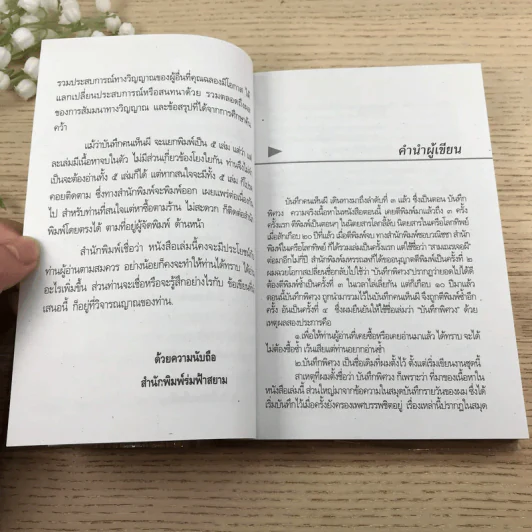 รวมประสบการณ์ทางวิญญาณของผู้อื่นที่คุณฉลองมีโอกาส ได้
แลกเปลี่ยนประสบการณ์หรือสนทนาด้วย รวมตลอดถึงผล
ของการสัมมนาทางวิญญาณ และข้อสรุปที่ได้จากการศึกษาค้น
คว้า
แม้ว่าบันทึกคนเห็นผี จะแยกพิมพ์เป็น ๕ เล่ม แต่ว่า
ละเล่มมีเนื้อหาจบในตัว ไม่มีส่วนเกี่ยวข้องโยงใยกัน ท่านจึงไม่
เป็นจะต้องอ่านทั้ง ๕ เล่มก็ได้ แต่หากสนใจจะมีทั้ง ๕ เล่ม
คอยติดตาม ซึ่งทางสำนักพิมพ์จะพิมพ์ออก เผยแพร่ต่อเนื่องกัน
ไป สำหรับท่านที่สนใจแต่หาซื้อตามร้าน ไม่สะดวก ก็ติดต่อสำนัก
พิมพ์โดยตรงได้ ตามที่อยู่ผู้จัดพิมพ์ ด้านหน้า
สำนักพิมพ์เชื่อว่า หนังสือเล่มนี้คงจะมีประโยชน์กับ
ท่านผู้อ่านตามสมควร อย่างน้อยก็คงจะทำให้ท่านได้ทราบ ได้อ่าน
อะไรเพิ่มขึ้น ส่วนท่านจะเชื่อหรือจะรู้สึกอย่างไรกับ ข้อเขียนที่
เสนอนี้ ก็อยู่ที่วิจารณญาณของท่าน.
ด้วยความนับถือ
สำนักพิมพ์ร่มฟ้าสยาม
คำนำผู้เขียน
บันทึกคนเห็นผี เดินทางมาถึงลำดับที่ ๓ แล้ว ซึ่งเป็นตอน บันทึก
พิศวง ความจริงเนื้อหาในหนังสือตอนนี้ เคยตีพิมพ์มาแล้วถึง ๓ ครั้ง
ครั้งแรก ตีพิมพ์เป็นตอนๆ ในนิตยสารโลกลี้ลับ นิตยสารในเครือโลกทิพย์
เมื่อสักเกือบ ๒๐ ปีที่แล้ว เมื่อตีพิมพ์จบ ทางสำนักพิมพ์ชอบวณิชชา สำนัก
พิมพ์ในเครือโลกทิพย์ ก็ได้รวมเล่มเป็นครั้งแรก แต่ใช้ชื่อว่า "สามเณรเจอผี"
ต่อมาอีกไม่กี่ปี สำนักพิมพ์แพรวรรณพลก็ได้ขออนุญาตตีพิมพ์เป็นครั้งที่ ๒
ผมฉวยโอกาสเปลี่ยนชื่อกลับไปใช้ว่า "บันทึกพิศวง"ปรากฏว่ายอดไปได้ดี
ต้องตีพิมพ์ซ้ำเป็นครั้งที่ ๓ ในเวลาไล่เลี่ยกัน แต่ก็เกือบ ๑๐ ปีมาแล้ว
ตอนนี้บันทึกพิศวง ถูกนำมารวมไว้ในบันทึกคนเห็นผี จึงถูกตีพิมพ์ซ้ำอีก
ครั้ง อันเป็นครั้งที่ ๔ ซึ่งผมยืนยันให้ใช้ชื่อเล่มว่า "บันทึกพิศวง" ด้วย
เหตุผลสองประการคือ
๑.เพื่อให้ท่านผู้อ่านที่เคยซื้อหรือเคยอ่านมาแล้ว ได้ทราบ จะได้
ไม่ต้องซื้อซ้ำ เว้นเสียแต่ท่านอยากอ่านซ้ำ
๒.บันทึกพิศวง เป็นชื่อเดิมที่ผมตั้งไว้ ตั้งแต่เริ่มเขียนงานชุดนี้
สาเหตุที่ผมตั้งชื่อว่า บันทึกพิศวง ก็เพราะว่า ที่มาของเนื้อหาใน
หนังสือเล่มนี้ ส่วนใหญ่มาจากข้อความในสมุดบันทึกรายวันของผม ซึ่งได้
เริ่มบันทึกไว้เมื่อครั้งยังครองเพศบรรพชิตอยู่ เรื่องเหล่านี้ปรากฏในสมุด